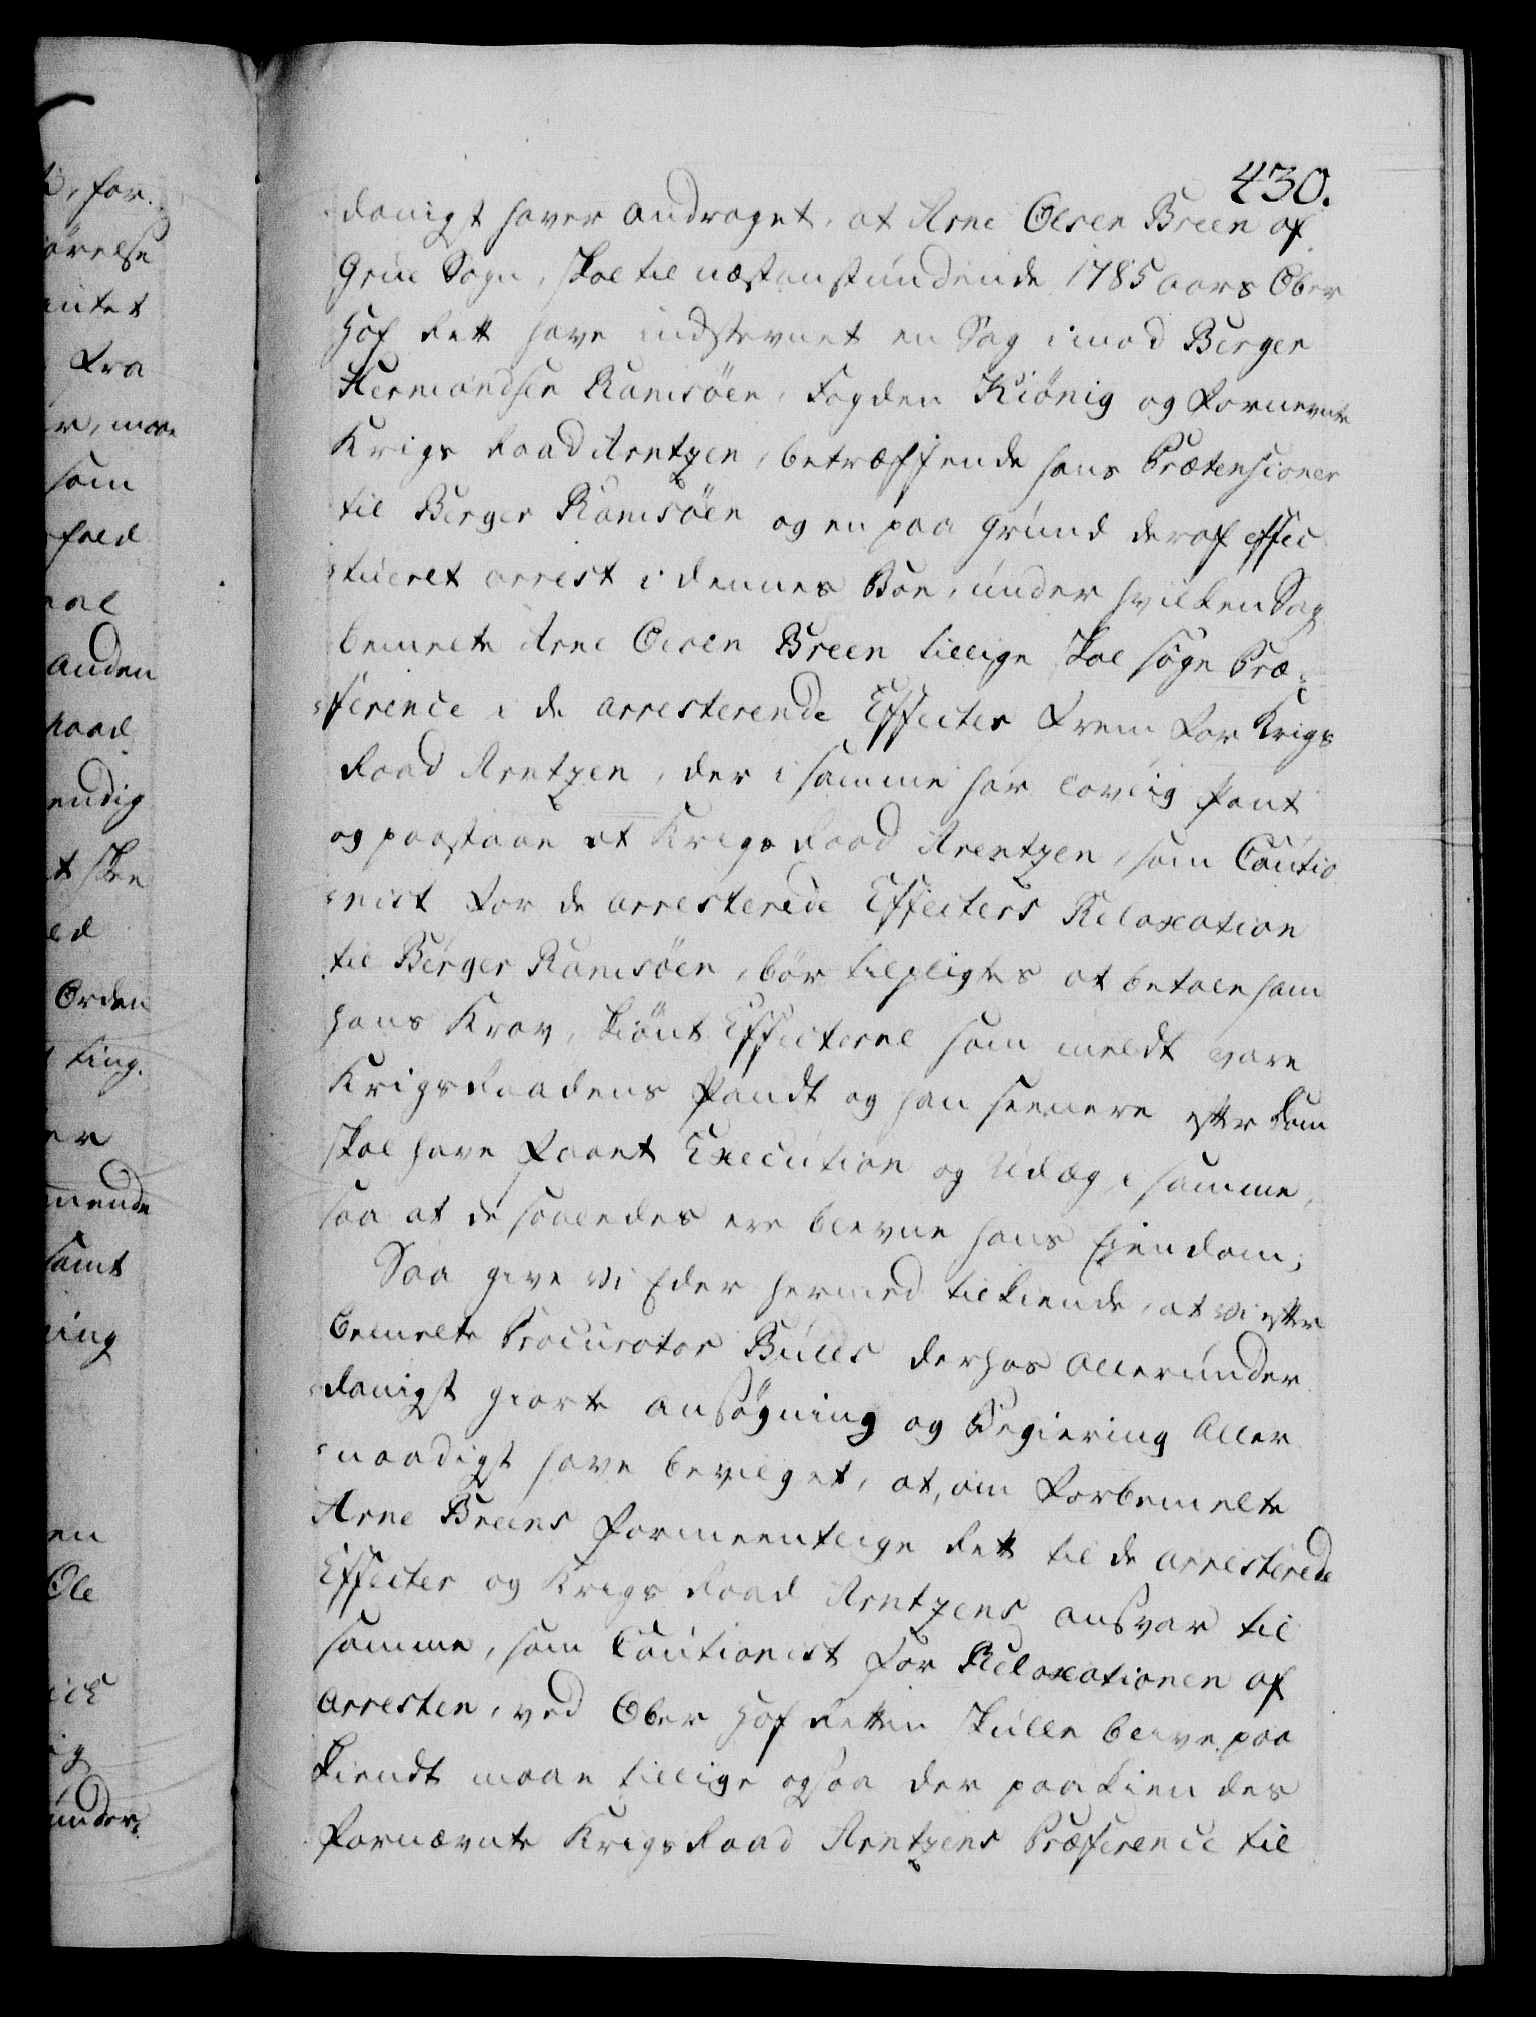 430.
danigst haver andraget, at Arne Olsen Breen af
Grue Sogn, skal til næstanstundende 1785 aars Ober
Hof Rett have indstevnet en Sag imod Berger
Hermandsen Ramsöen, Fogden Kiönig og Fornevnte
Krigs Raad Arntzen, betræffende hans Prætensioner
til Berger Ramsöen og en paa Grund deraf effec
tueret arrest i dennes Boe, under hvilken Sag
bemelte Arne Olsen Breen tillige skal söge Præ
ference i de arresterende Effecter frem for Krigs
Raad Arntzen, der i samme har lovlig Pant
og paastaae at Krigs Raad Arentzen, som Cautio
nist for de arresterede Effecters Relaxation
til Berger Ramsöen, bör tilpligtes at betale ham
hans Krav, skiönt Effecterne som meldt vare
Krigs Raadens Pandt og han seenere efter Dom
skal have faaet Execution og Udlæg i samme,
saa at de saaledes ere blevne hans Eiendom;
Saa give vi Eder hermed tilkiende, at vi efter
bemelte Procurator Bulls derhos allerunder
danigst giorte ansögning og Begiering Aller
naadigst have bevilget, at, om forbemelte
Arne Breens formeentlige Rett til de arresterede
Effecter og Krigs Raad Arntzens ansvar til
samme, som Cautionist for Relaxationen af
Arresten, ved Ober Hof Retten skulle blive paa
kiendt maae tillige ogsaa der paakiendes
fornævnte Krigs Raad Arntzens Præference til